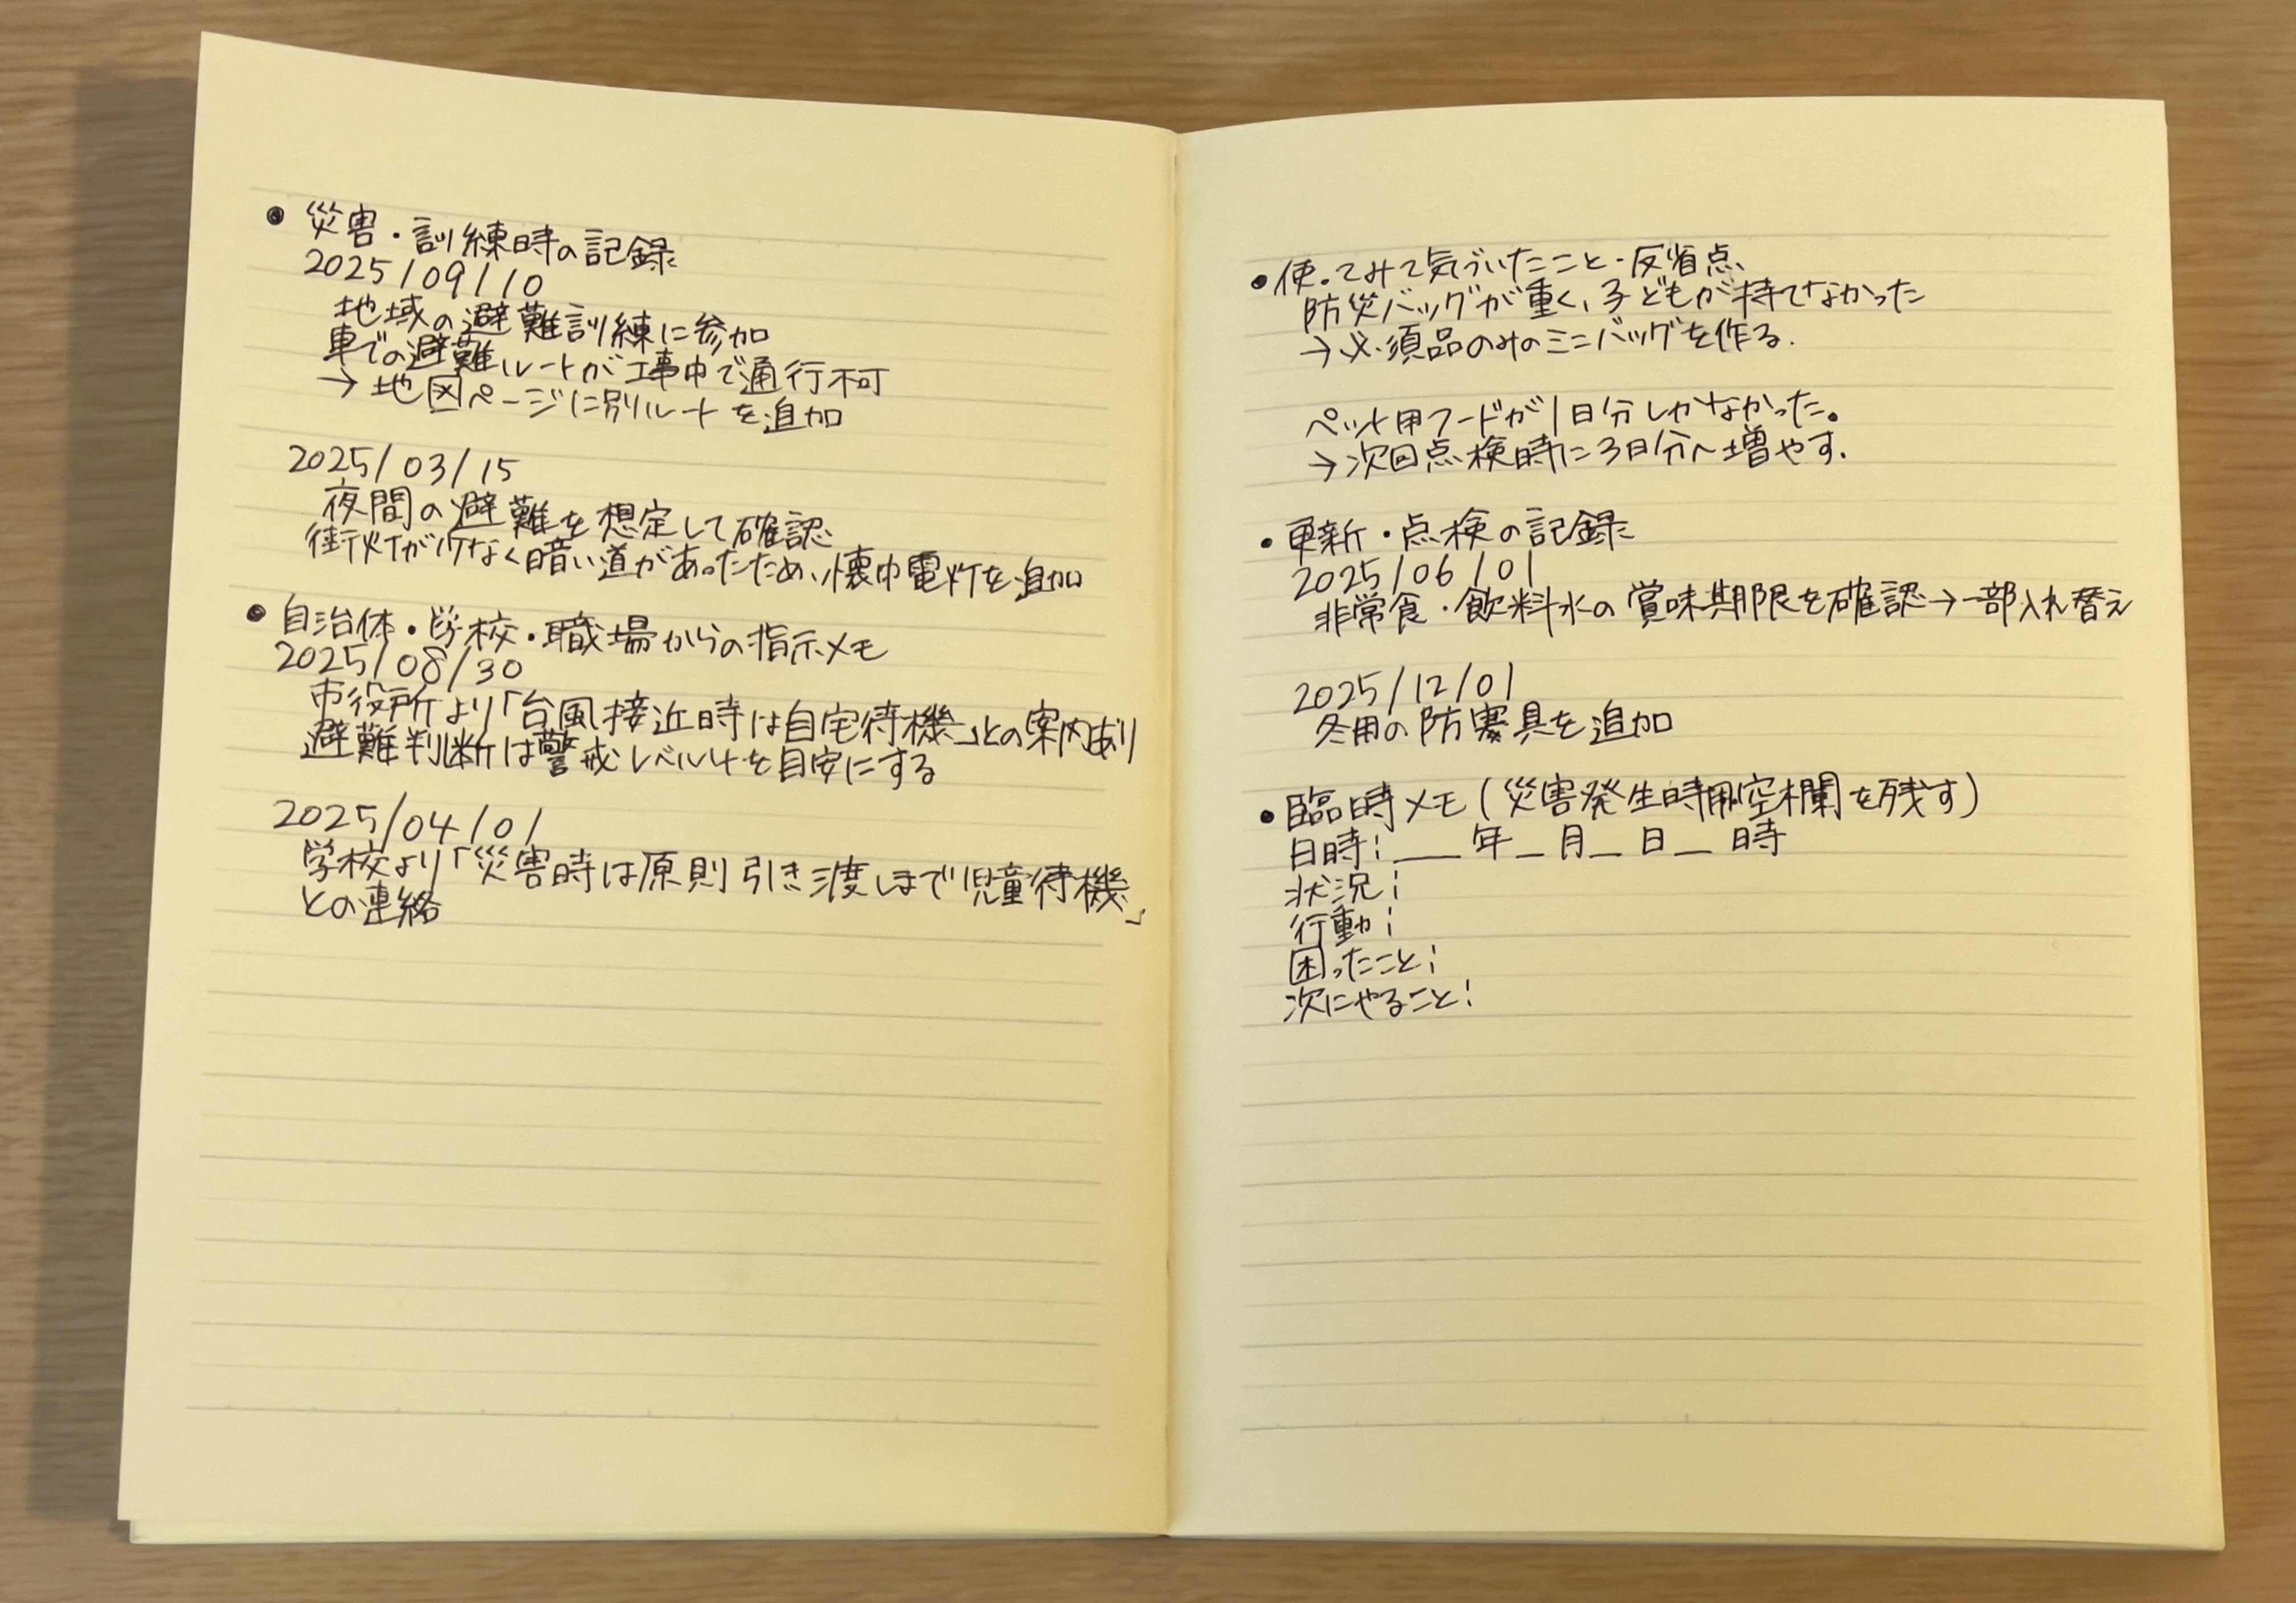 ● 災害・訓練時の記録
2025/09/10
地域の避難訓練に参加
車での避難ルートが工事中で通行不可
→地図ページに別ルートを追加
2025/03/15
夜間の避難を想定して確認
街灯が少なく暗い道があったため、懐中電灯を追加
● 自治体・学校・職場からの指示メモ
2025/08/30
市役所より「台風接近時は自宅待機」との案内あり
避難判断は警戒レベル4を目安にする
2025/04/01
学校より「災害時は原則引き渡しまで児童待機」
との連絡
● 使ってみて気づいたこと・反省点
防災バッグが重く、子どもが持てなかった
→必須品のみのミニバッグを作る.
ペット用フードが1日分しかなかった。
→次回点検時に3日分へ増やす.
● 更新・点検の記録
2025/06/01
非常食・飲料水の賞味期限を確認→一部入れ替え
2025/12/01
冬用の防寒具を追加
● 臨時メモ(災害発生時用空欄を残す)
日時:___年_月_日_時
状況:
行動:
困ったこと:
次にやること: